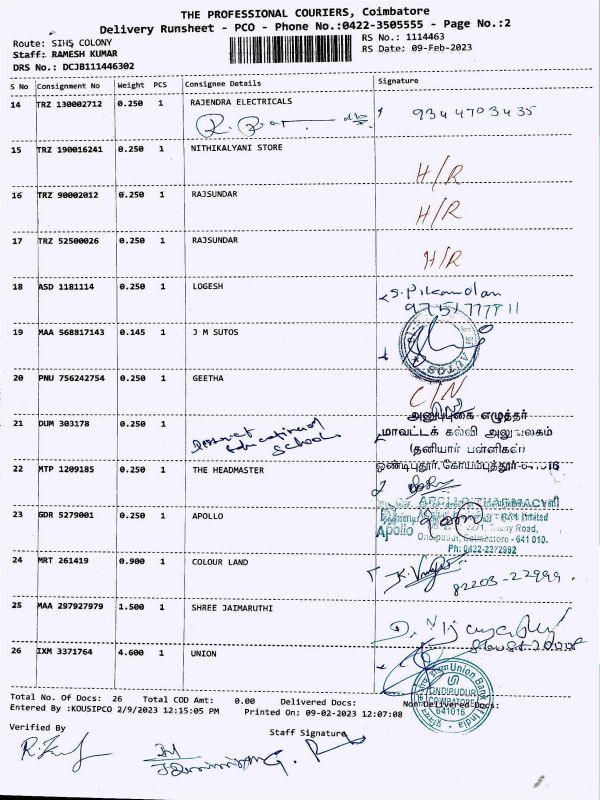 THE PROFESSIONAL COURIERS, Coimbatore
Delivery Runsheet - PCO - Phone No.:0422-3505555 - Page No.:2
Route: SIHS COLONY
RS No.: 1114463
Staff: RAMESH KUMAR
RS Date: 09-Feb-2023
DRS No.: DCJB111446302
S No Consignment No Weight PCS Consignee Details Signature
14 TRZ 130002712 0.250 1 RAJENDRA ELECTRICALS
9344703435
15 TRZ 190016241 0.250 1 NITHIKALYANI STORE
H/R
16 TRZ 90002012 0.250 1 RAJSUNDAR
H/R
17 TRZ 52500026 0.250 1 RAJSUNDAR
H/R
18 ASD 1181114 0.250 1 LOGESH
19 MAA 568817143 0.145 1 J M SUTOS
AUTOS
20 PNU 756242754 0.250 1 GEETHA
C/N
அனுப்புகை எழுத்தர்
21 DUM 303178 0.250 1
District Educational School
மாவட்டக் கல்வி அலுவலகம்
(தனியார் பள்ளிகள்)
ஒண்டிபுதூர், கோயம்புத்தூர்
22 MTP 1209185 0.250 1 THE HEADMASTER
APOLLO PHARMACY
23 GDR 5279001 0.250 1 APOLLO
Limited
Apollo
Road,
Coimbatore - 641 010.
Ph: 0422-2372992
24 MRT 261419 0.900 1 COLOUR LAND
82203-22999
25 MAA 297927979 1.500 1 SHREE JAIMARUTHI
26 IXM 3371764 4.600 1 UNION
Union Bank of India
ONDIPUDUR
COIMBATORE
641016
Total No. Of Docs: 26 Total COD Amt: 0.00 Delivered Docs: Non Delivered Docs:
Entered By :KOUSIPCO 2/9/2023 12:15:05 PM Printed On: 09-02-2023 12:07:08
Verified By
Staff Signature